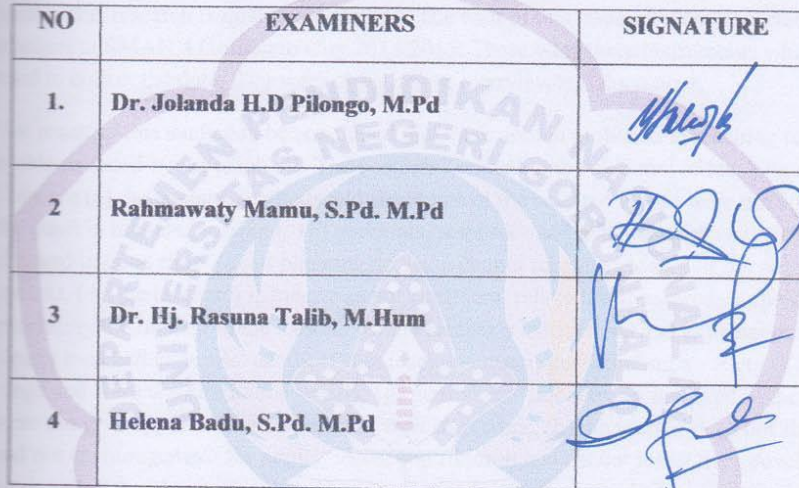 NO EXAMINERS SIGNATURE
1. Dr. Jolanda H.D Pilongo, M.Pd
2 Rahmawaty Mamu, S.Pd. M.Pd
3 Dr. Hj. Rasuna Talib, M.Hum
4 Helena Badu, S.Pd. M.Pd
DEPARTEMEN PENDIDIKAN NASIONAL
UNIVERSITAS NEGERI GORONTALO